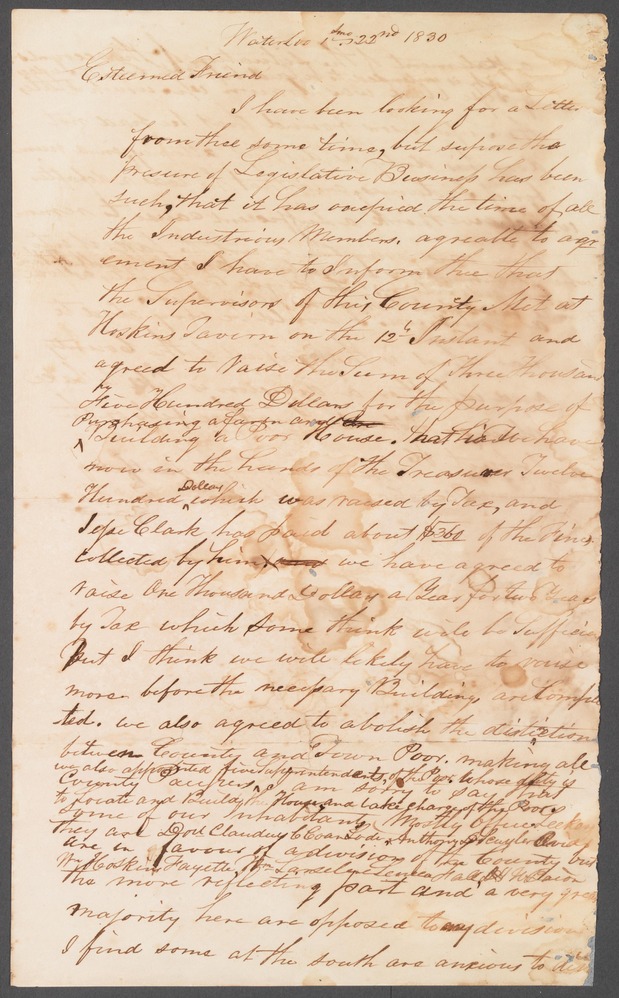 Waterloo 1mo 22nd 1830
Esteemed Friend
I have been looking for a Letter
from thee some time, but supose the
presure of Legislative Business has been
such, that it has occupied the time of all
the Industrious Members. agreable to agr
ement I have to Inform thee that
the Supervisors of this County Met at
Hoskins Tavern on the 12th Instant and
agreed to Raise the Sum of Three Thousan
Five Hundred Dollars for the purpose of
Purchasing a farm and
Building a Poor House. that is We have
now in the hands of the Treasurer Twelve
Hundred Dollars which was raised by Tax, and
Jesse Clark has paid about $360 of the fines
Collected by him we have agreed to
raise One Thousand Dollars a Year for two Years
by Tax which some think will be Sufficien
But I think we will likely have to raise
more before the necessary Buildings are Comple
ted. we also agreed to abolish the distinction
between County and Town Poor. making all
we also appointed five Superintendents of the Poor whose duty is
County Paupers, I am sorry to say that
to Locate and Build the House and take charge of the Poor
some of our Inhabitants Mostly
they are Anthony Ovid
are in favour of a division of the County but
Wm Hoskins Fayette, Wm Seneca Falls
the more reflecting part and a very grea
majority here are opposed to any division
I find some at the south are anxious to